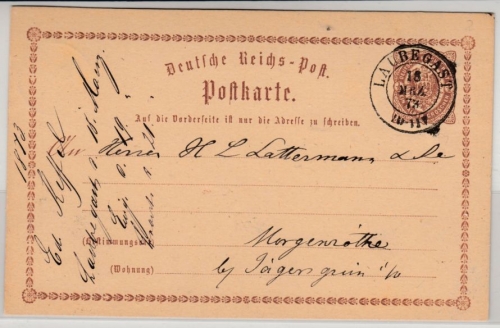 Deutsche Reichs-Post.
Postkarte.
Auf die Vorderseite ist nur die Adresse zu schreiben.
LAUBEGAST
18
MRZ
73
10-11V
An Herren H L Lattermann &
(Bestimmungsort)
Morgenröthe
(Wohnung)
by Jägersgrün i/v
1873
Ed
Laubegast, d. 18. Marz